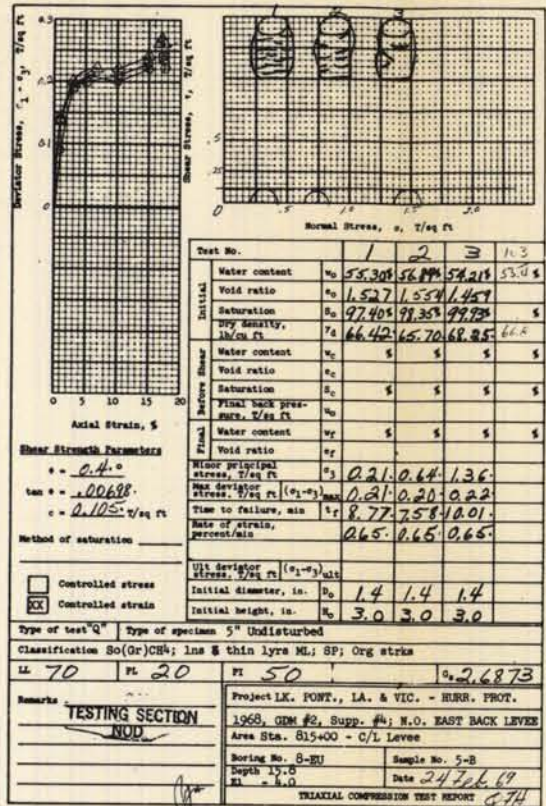 1 2 3
0.3
0.2
0.1
0
Deviator Stress, σ1 - σ3, T/sq ft
Shear Stress, τ, T/sq ft
.5
.25
0 .5 1.0 1.5 2.0
Normal Stress, σ, T/sq ft
0 5 10 15 20
Axial Strain, %
Shear Strength Parameters
φ = 0.4°
tan φ = .00698
c = 0.105 T/sq ft
Method of saturation
Controlled stress
XX Controlled strain
Test No. 1 2 3
Initial
Water content w₀ 55.30% 56.84% 54.21% %
Void ratio e₀ 1.527 1.554 1.459
Saturation S₀ 97.40% 98.35% 99.93% %
Dry density, lb/cu ft γd 66.42 65.70 68.25
Before Shear
Water content wc % % % %
Void ratio ec
Saturation Sc % % % %
Final back pressure, T/sq ft u₀
Final
Water content wf % % % %
Void ratio ef
Minor principal stress, T/sq ft σ3 0.21 0.64 1.36
Max deviator stress, T/sq ft (σ1-σ3)max 0.21 0.20 0.22
Time to failure, min tf 8.77 7.58 10.01
Rate of strain, percent/min 0.65 0.65 0.65
Ult deviator stress, T/sq ft (σ1-σ3)ult
Initial diameter, in. D₀ 1.4 1.4 1.4
Initial height, in. H₀ 3.0 3.0 3.0
Type of test "Q" Type of specimen 5" Undisturbed
Classification So(Gr)CH4; lns & thin lyrs ML; SP; Org strks
LL 70 PL 20 PI 50 Gs 2.6873
Remarks
TESTING SECTION
NOD
Project LK. PONT., LA. & VIC. - HURR. PROT.
1968, GDM #2, Supp. #4; N.O. EAST BACK LEVEE
Area Sta. 815+00 - C/L Levee
Boring No. 8-EU Sample No. 5-B
Depth 15.8
El - 4.0
Date 24 Feb 69
TRIAXIAL COMPRESSION TEST REPORT